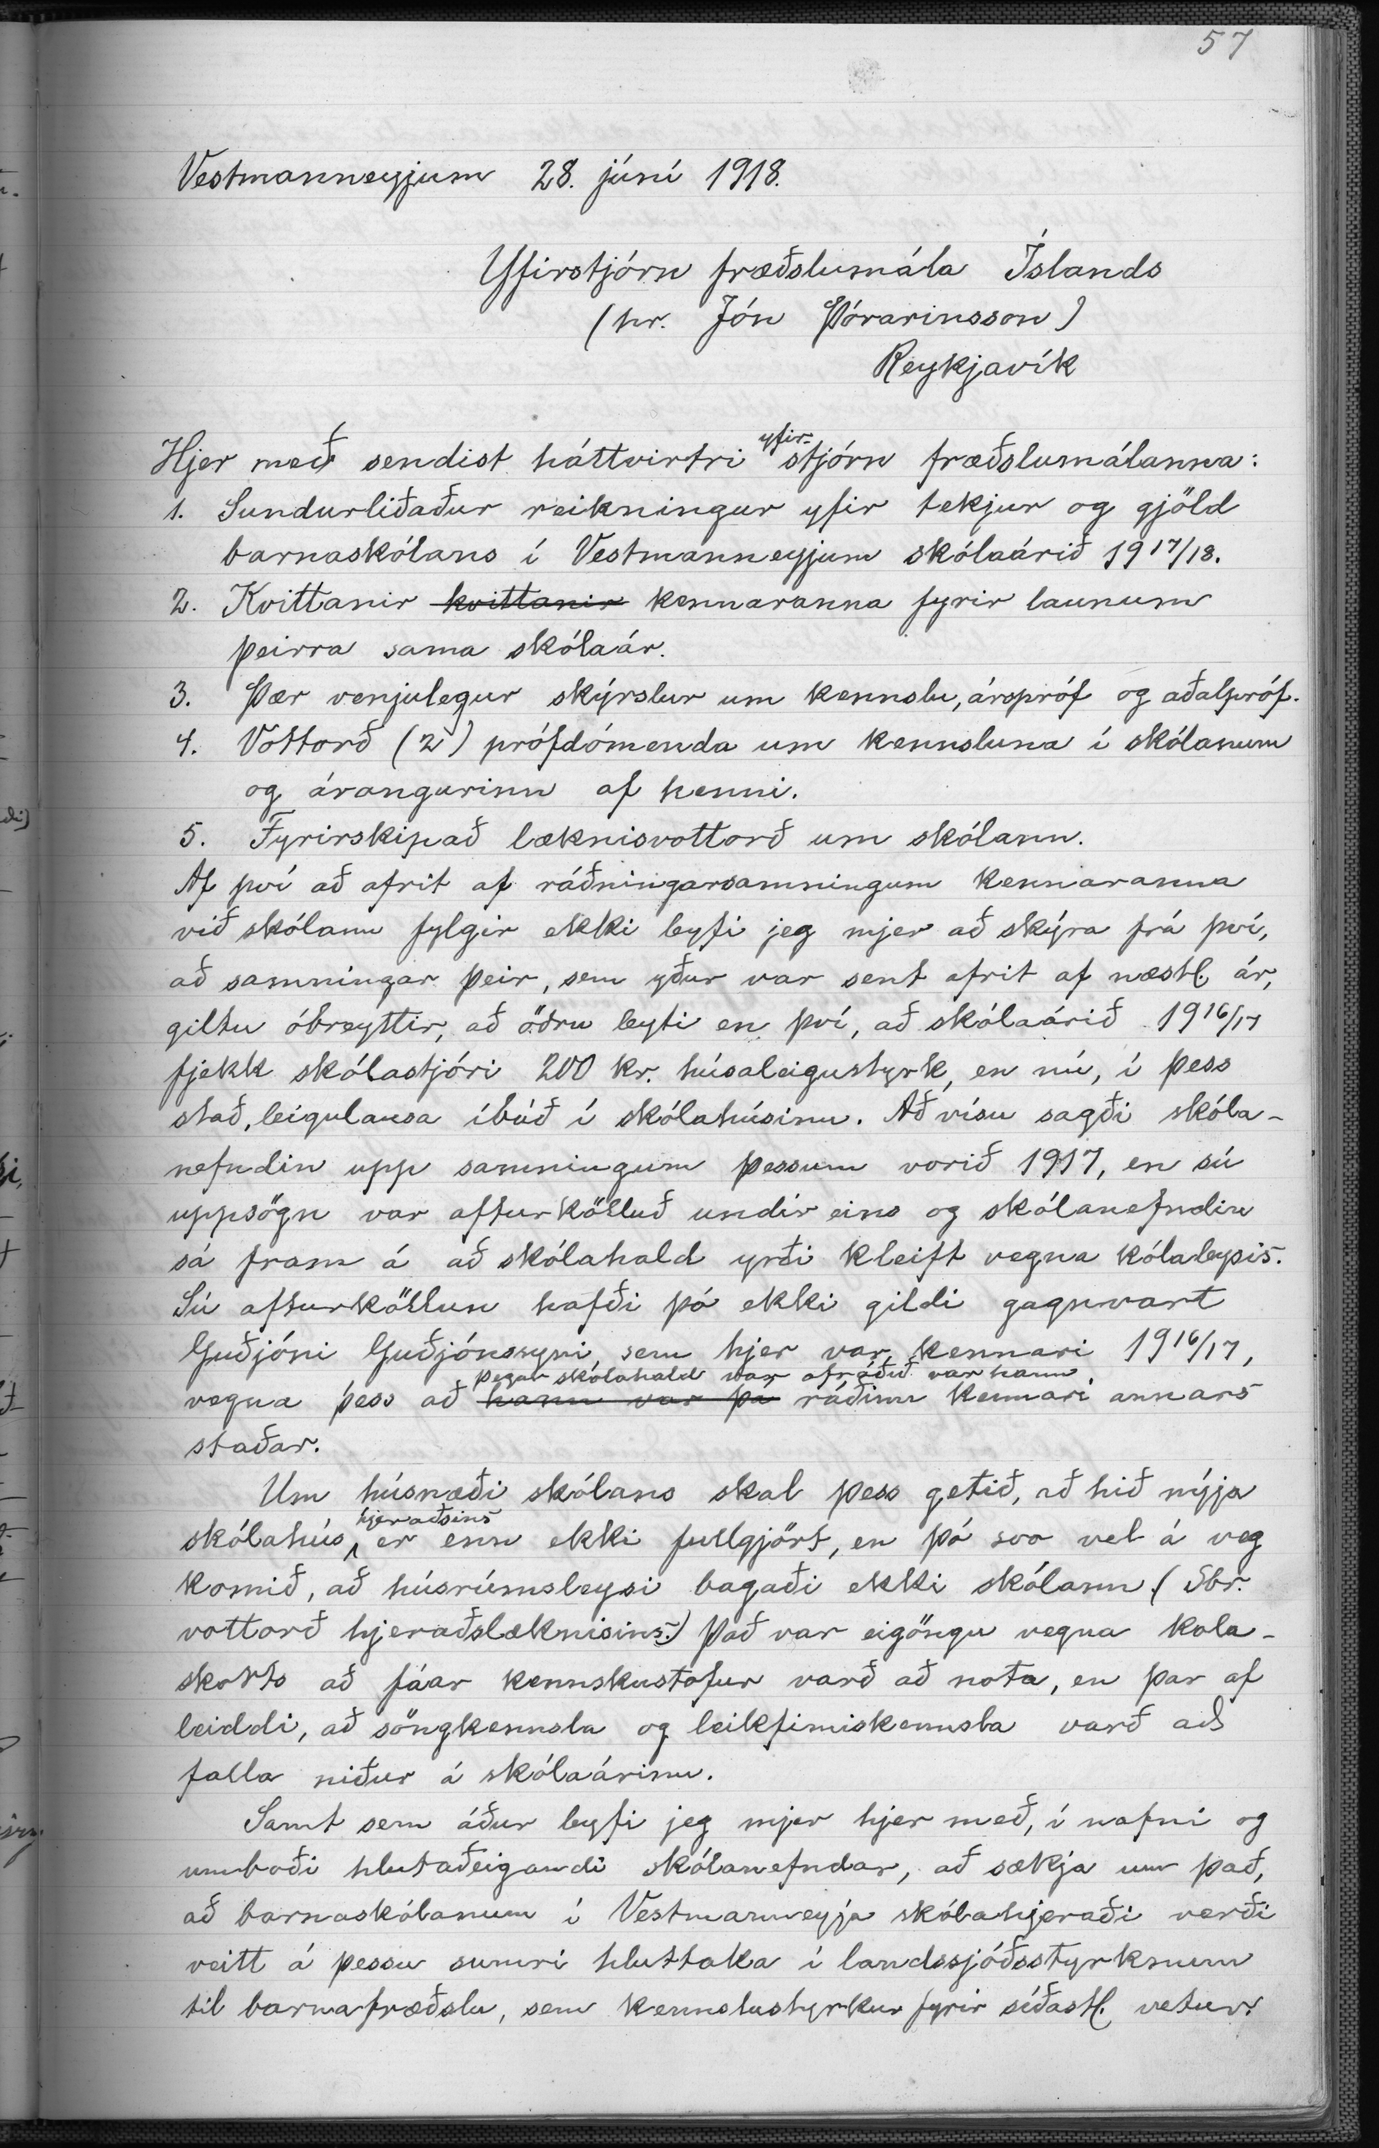 57
Vestmanneyjum 28. júní 1918.
Yfirstjórn fræðslumála Íslands
(hr. Jón Þórarinsson)
Reykjavík
Hjer með sendist háttvirtri yfir-stjórn fræðslumálanna:
1. Sundurliðaður reikningur yfir tekjur og gjöld
barnaskólans í Vestmanneyjum skólaárið 1917/18.
2. Kvittanir kvittanir kennaranna fyrir launum
þeirra sama skólaár.
3. Þær venjulegur skýrslur um kennslu, árspróf og aðalpróf.
4. Vottorð (2) prófdómenda um kennsluna í skólanum
og árangurinn af henni.
5. Fyrirskipað læknisvottorð um skólann.
Af því að afrit af ráðningarsamningum kennaranna
við skólann fylgir ekki leyfi jeg mjer að skýra frá því,
að samningar þeir, sem yður var sent afrit af næstl. ár,
giltu óbreyttir, að öðru leyti en því, að skólaárið 1916/17
fjekk skólastjóri 200 kr. húsaleigustyrk, en nú, í þess
stað, leigulausa íbúð í skólahúsinu. Að vísu sagði skóla-
nefndin upp samningum þessum vorið 1917, en sú
uppsögn var afturkölluð undir eins og skólanefndin
sá fram á að skólahald yrði kleift vegna kólaleysis.
Sú afturköllun hafði þó ekki gildi gagnvart
Guðjóni Guðjónssyni, sem hjer var kennari 1916/17,
þegar skólahald var afráðið var hann
vegna þess að hann var þá ráðinn kennari annars
staðar.
Um húsnæði skólans skal þess getið, að hið nýja
hjeraðsins
skólahús er enn ekki fullgjört, en þó svo vel á veg
komið, að húsrúmsleysi bagaði ekki skólann. (Sbr.
vottorð hjeraðslæknisins.) Það var eigöngu vegna kola-
skorts að fáar kennskustofur varð að nota, en þar af
leiddi, að söngkennsla og leikfimiskennsla varð að
falla niður á skólaárinu.
Samt sem áður leyfi jeg mjer hjer með, í nafni og
umboði hlutaðeigandi skólanefndar, að sækja um það,
að barnaskólanum í Vestmanneyja skólahjeraði verði
veitt á þessu sumri hluttaka í landssjóðsstyrknum
til barnafræðslu, sem kennslustyrkur fyrir síðastl. vetur.